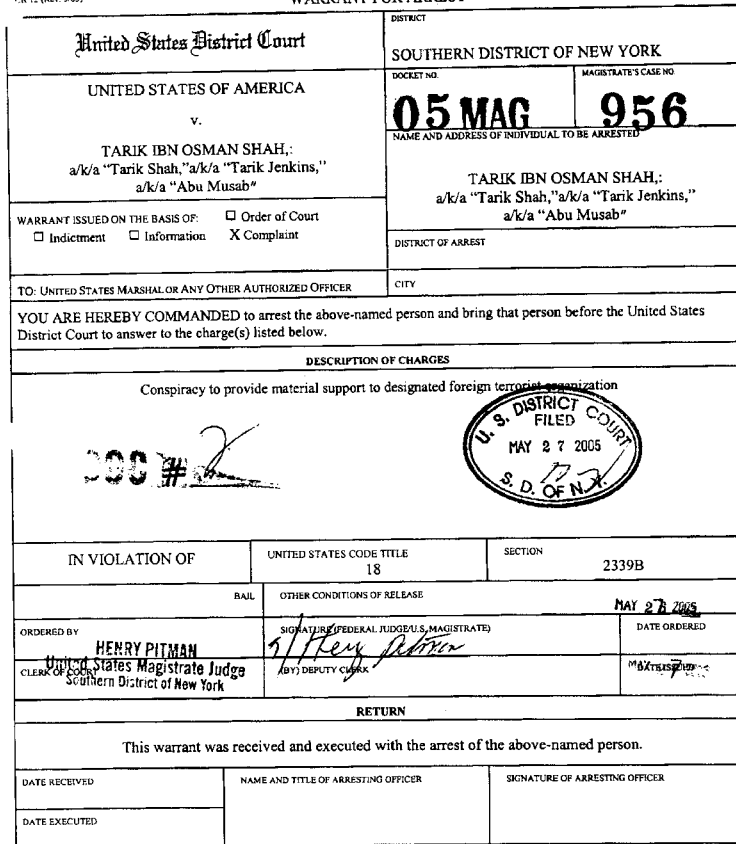 WARRANT FOR ARREST
United States District Court
DISTRICT
SOUTHERN DISTRICT OF NEW YORK
UNITED STATES OF AMERICA
v.
TARIK IBN OSMAN SHAH,:
a/k/a "Tarik Shah,"a/k/a "Tarik Jenkins,"
a/k/a "Abu Musab"
DOCKET NO.
MAGISTRATE'S CASE NO.
05 MAG 956
NAME AND ADDRESS OF INDIVIDUAL TO BE ARRESTED
TARIK IBN OSMAN SHAH,:
a/k/a "Tarik Shah,"a/k/a "Tarik Jenkins,"
a/k/a "Abu Musab"
WARRANT ISSUED ON THE BASIS OF: ☐ Order of Court
☐ Indictment ☐ Information X Complaint
DISTRICT OF ARREST
TO: UNITED STATES MARSHAL OR ANY OTHER AUTHORIZED OFFICER
CITY
YOU ARE HEREBY COMMANDED to arrest the above-named person and bring that person before the United States
District Court to answer to the charge(s) listed below.
DESCRIPTION OF CHARGES
Conspiracy to provide material support to designated foreign terrorist organization
U. S. DISTRICT COURT
FILED
MAY 27 2005
S. D. OF N.Y.
DOC # 2
IN VIOLATION OF
UNITED STATES CODE TITLE
18
SECTION
2339B
BAIL
OTHER CONDITIONS OF RELEASE
MAY 2 2005
ORDERED BY
HENRY PITMAN
United States Magistrate Judge
Southern District of New York
SIGNATURE (FEDERAL JUDGE/U.S. MAGISTRATE)
s/ Henry Pitman
DATE ORDERED
CLERK OF COURT
(BY) DEPUTY CLERK
RETURN
This warrant was received and executed with the arrest of the above-named person.
DATE RECEIVED
NAME AND TITLE OF ARRESTING OFFICER
SIGNATURE OF ARRESTING OFFICER
DATE EXECUTED